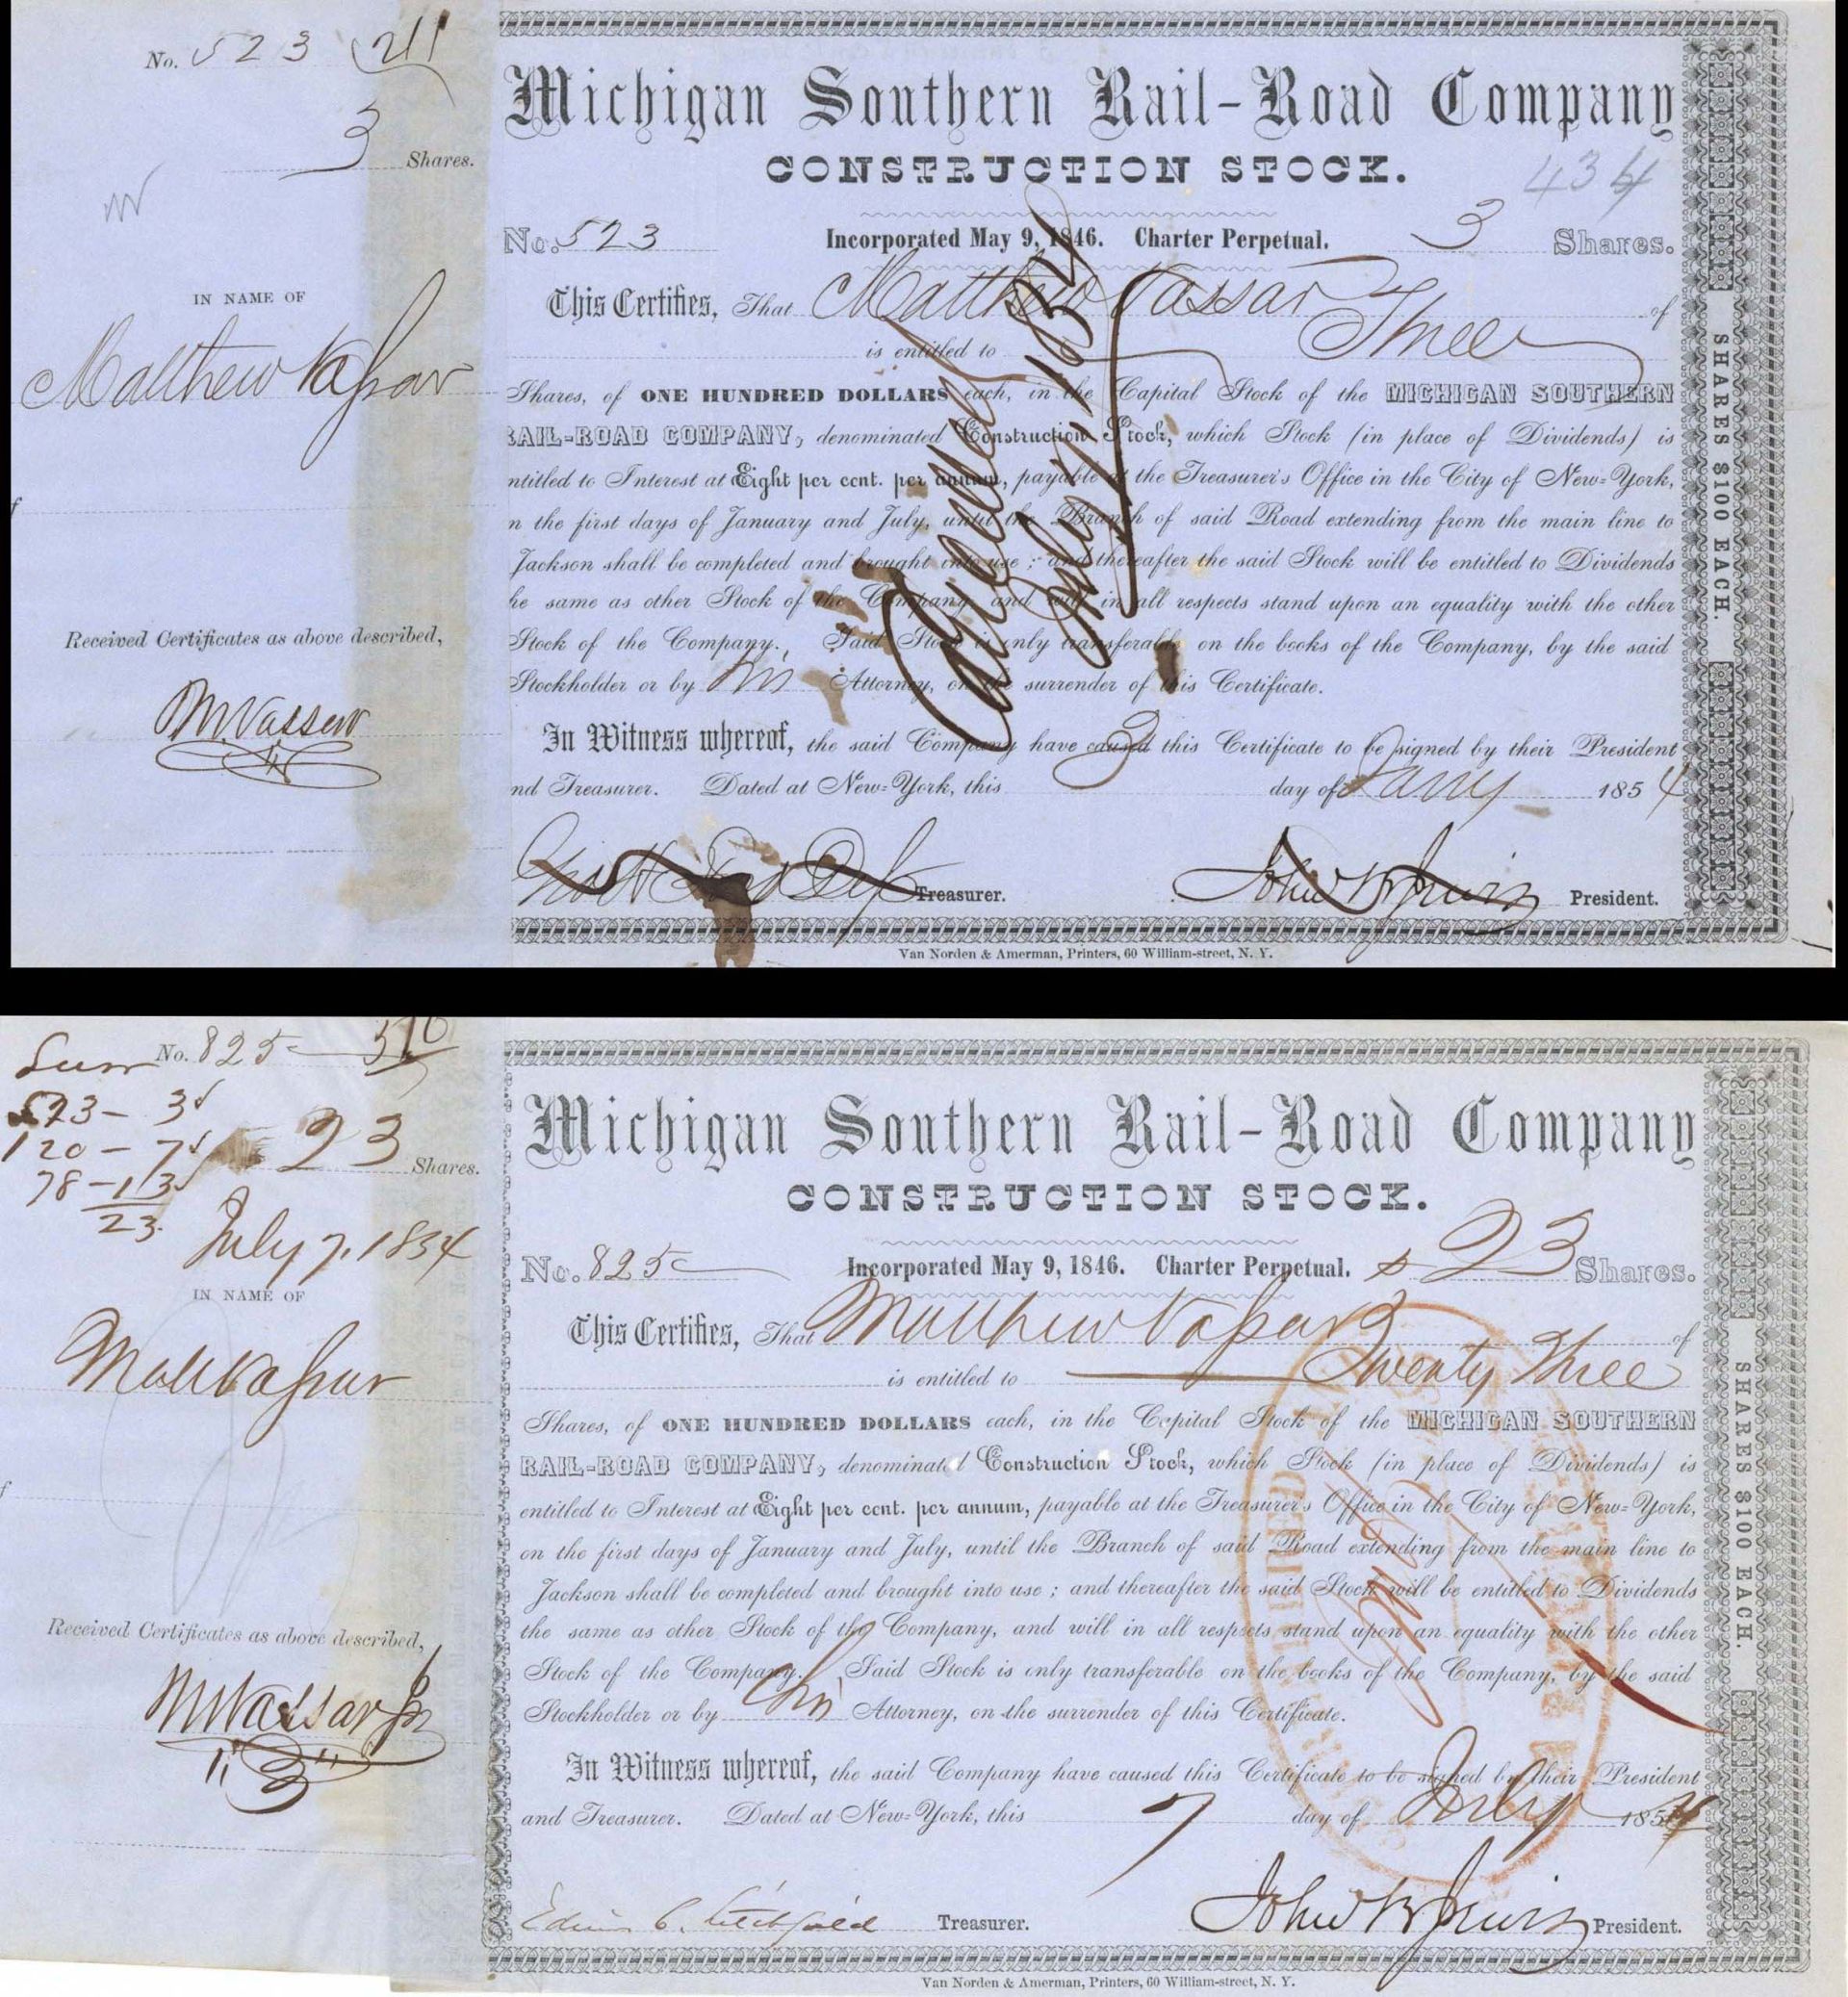 No. 523 211
3 Shares.
IN NAME OF
Matthew Vassar
Received Certificates as above described,
M. Vassar
Michigan Southern Rail-Road Company
CONSTRUCTION STOCK.
434
No. 523 Incorporated May 9, 1846. Charter Perpetual. 3 Shares.
This Certifies, That Matthew Vassar of
is entitled to Three
Shares, of ONE HUNDRED DOLLARS each, in the Capital Stock of the MICHIGAN SOUTHERN
RAIL-ROAD COMPANY, denominated Construction Stock, which Stock (in place of Dividends) is
ntitled to Interest at Eight per cent. per annum, payable at the Treasurer's Office in the City of New-York,
n the first days of January and July, until the Branch of said Road extending from the main line to
Jackson shall be completed and brought into use; and thereafter the said Stock will be entitled to Dividends
he same as other Stock of the Company, and will in all respects stand upon an equality with the other
Stock of the Company. Said Stock is only transferable on the books of the Company, by the said
Stockholder or by his Attorney, on the surrender of this Certificate.
In Witness whereof, the said Company have caused this Certificate to be signed by their President
nd Treasurer. Dated at New-York, this 3 day of Jany 1854
Treasurer. John B Jervis President.
Cancelled July 7, 1854
SHARES $100 EACH.
Van Norden & Amerman, Printers, 60 William-street, N. Y.
Surr No. 825 510
523 - 3
120 - 7
78 - 13
23
23 Shares.
July 7, 1854
IN NAME OF
Matt Vassar
Received Certificates as above described,
M Vassar Jr
Michigan Southern Rail-Road Company
CONSTRUCTION STOCK.
No. 825 Incorporated May 9, 1846. Charter Perpetual. 23 Shares.
This Certifies, That Matthew Vassar of
is entitled to Twenty Three
Shares, of ONE HUNDRED DOLLARS each, in the Capital Stock of the MICHIGAN SOUTHERN
RAIL-ROAD COMPANY, denominated Construction Stock, which Stock (in place of Dividends) is
entitled to Interest at Eight per cent. per annum, payable at the Treasurer's Office in the City of New-York,
on the first days of January and July, until the Branch of said Road extending from the main line to
Jackson shall be completed and brought into use; and thereafter the said Stock will be entitled to Dividends
the same as other Stock of the Company, and will in all respects stand upon an equality with the other
Stock of the Company. Said Stock is only transferable on the books of the Company, by the said
Stockholder or by his Attorney, on the surrender of this Certificate.
In Witness whereof, the said Company have caused this Certificate to be signed by their President
and Treasurer. Dated at New-York, this 7 day of July 1854
Edwin C. Litchfield Treasurer. John B Jervis President.
SHARES $100 EACH.
Van Norden & Amerman, Printers, 60 William-street, N. Y.